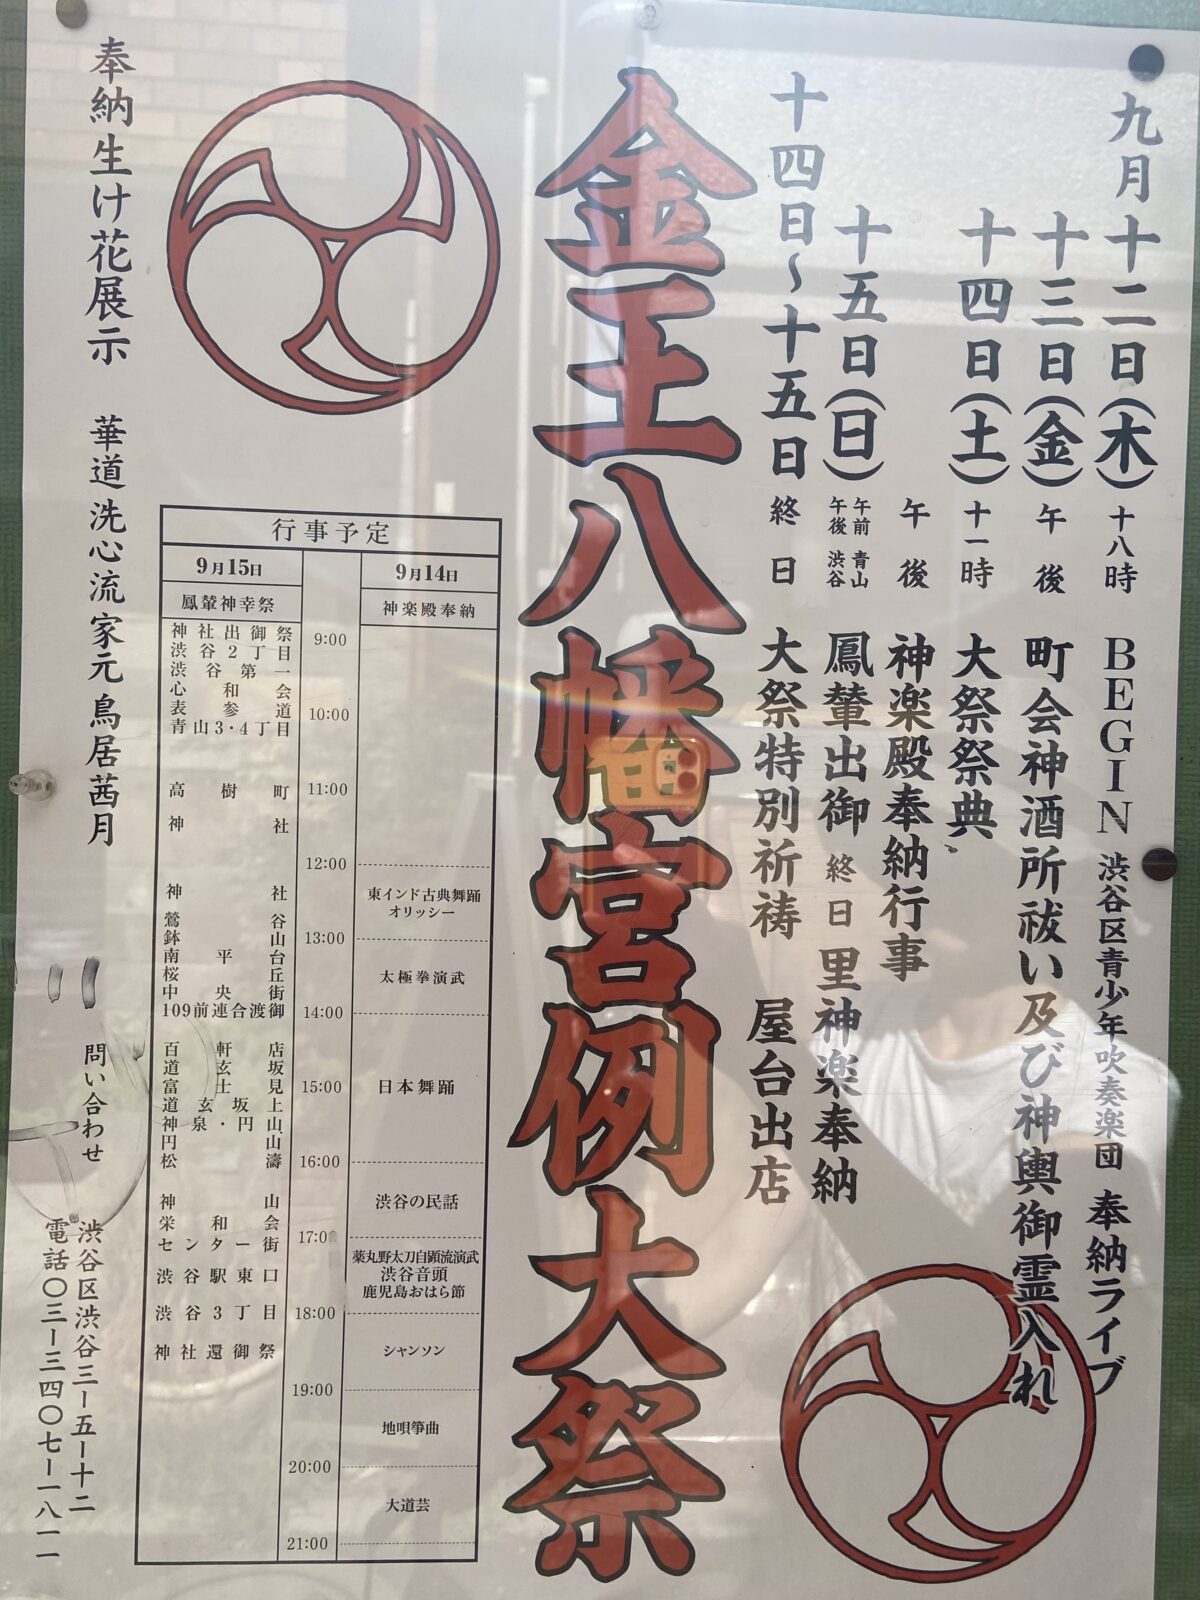 九月十二日(木) 十八時 BEGIN 渋谷区青少年吹奏楽団 奉納ライブ
十三日(金) 午後 町会神酒所祓い及び神輿御霊入れ
十四日(土) 十一時 大祭祭典
午後 神楽殿奉納行事
十五日(日) 午前 青山 午後 渋谷 鳳輦出御 終日 里神楽奉納
十四日~十五日 終日 大祭特別祈祷 屋台出店
金王八幡宮例大祭
行事予定
9月14日
神楽殿奉納
東インド古典舞踊
オリッシー
太極拳演武
日本舞踊
渋谷の民話
薬丸野太刀自顕流演武
渋谷音頭
鹿児島おはら節
シャンソン
地唄箏曲
大道芸
9:00
10:00
11:00
12:00
13:00
14:00
15:00
16:00
17:00
18:00
19:00
20:00
21:00
9月15日
鳳輦神幸祭
神社出御祭
渋谷2丁目
渋谷第一
心和会
表参道
青山3・4丁目
高樹町
神社
神社
鶯谷
鉢山
南平台
桜丘
中央街
109前連合渡御
百軒店
道玄坂
富士見
道玄坂上
神泉・円山
円山
松濤
神山
栄和会
センター街
渋谷駅東口
渋谷3丁目
神社還御祭
奉納生け花展示 華道洗心流家元鳥居茜月
問い合わせ 渋谷区渋谷三ー五ー十二
電話〇三ー三四〇七ー一八一一